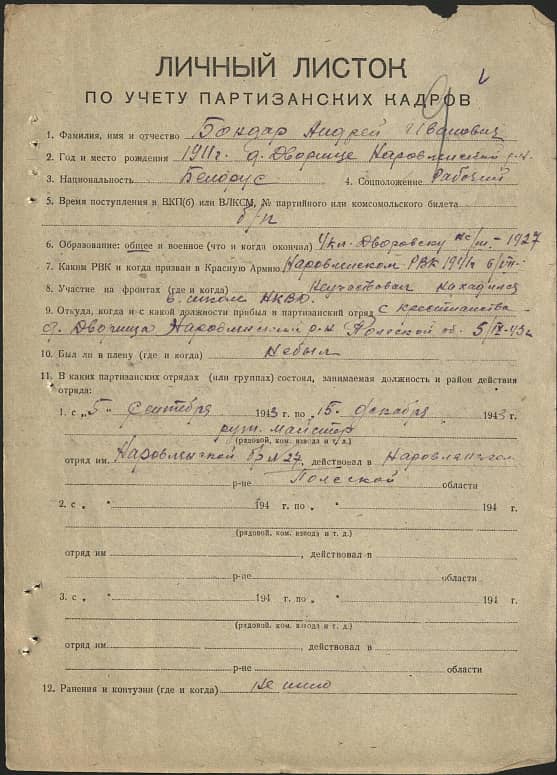 ЛИЧНЫЙ ЛИСТОК
ПО УЧЕТУ ПАРТИЗАНСКИХ КАДРОВ
1. Фамилия, имя и отчество Бондар Андрей Иванович
2. Год и место рождения 1911 г. д. Дворище Наровлянский р-н
3. Национальность Белорус 4. Соцположение Рабочий
5. Время поступления в ВКП(б) или ВЛКСМ, № партийного или комсомольского билета
б/п
6. Образование: общее и военное (что и когда окончил) 4 кл. 1927
7. Каким РВК и когда призван в Красную Армию Наровлянском РВК
8. Участие на фронтах (где и когда) Неучаствовал находился
9. Откуда, когда и с какой должности прибыл в партизанский отряд с крестьянства
д. Дворища Наровлянский р-н Полеской об. 5/IX-43 г.
10. Был ли в плену (где и когда) Небыл
11. В каких партизанских отрядах (или группах) состоял, занимаемая должность и район действия
отряда:
1. с „5" Сентября 1943 г. по „15" декабря 1943 г.
руж. майстер
(рядовой, ком. взвода и т. д.)
отряд им. Наровлянской бр №27, действовал в
р-не Полеской области
2. с „ " 194 г. по „ " 194 г.
(рядовой, ком. взвода и т. д.)
отряд им , действовал в
р-не области
3. с „ " 194 г. по „ " 194 г.
(рядовой, ком. взвода и т. д.)
отряд им. , действовал в
р-не области
12. Ранения и контузии (где и когда) не имею